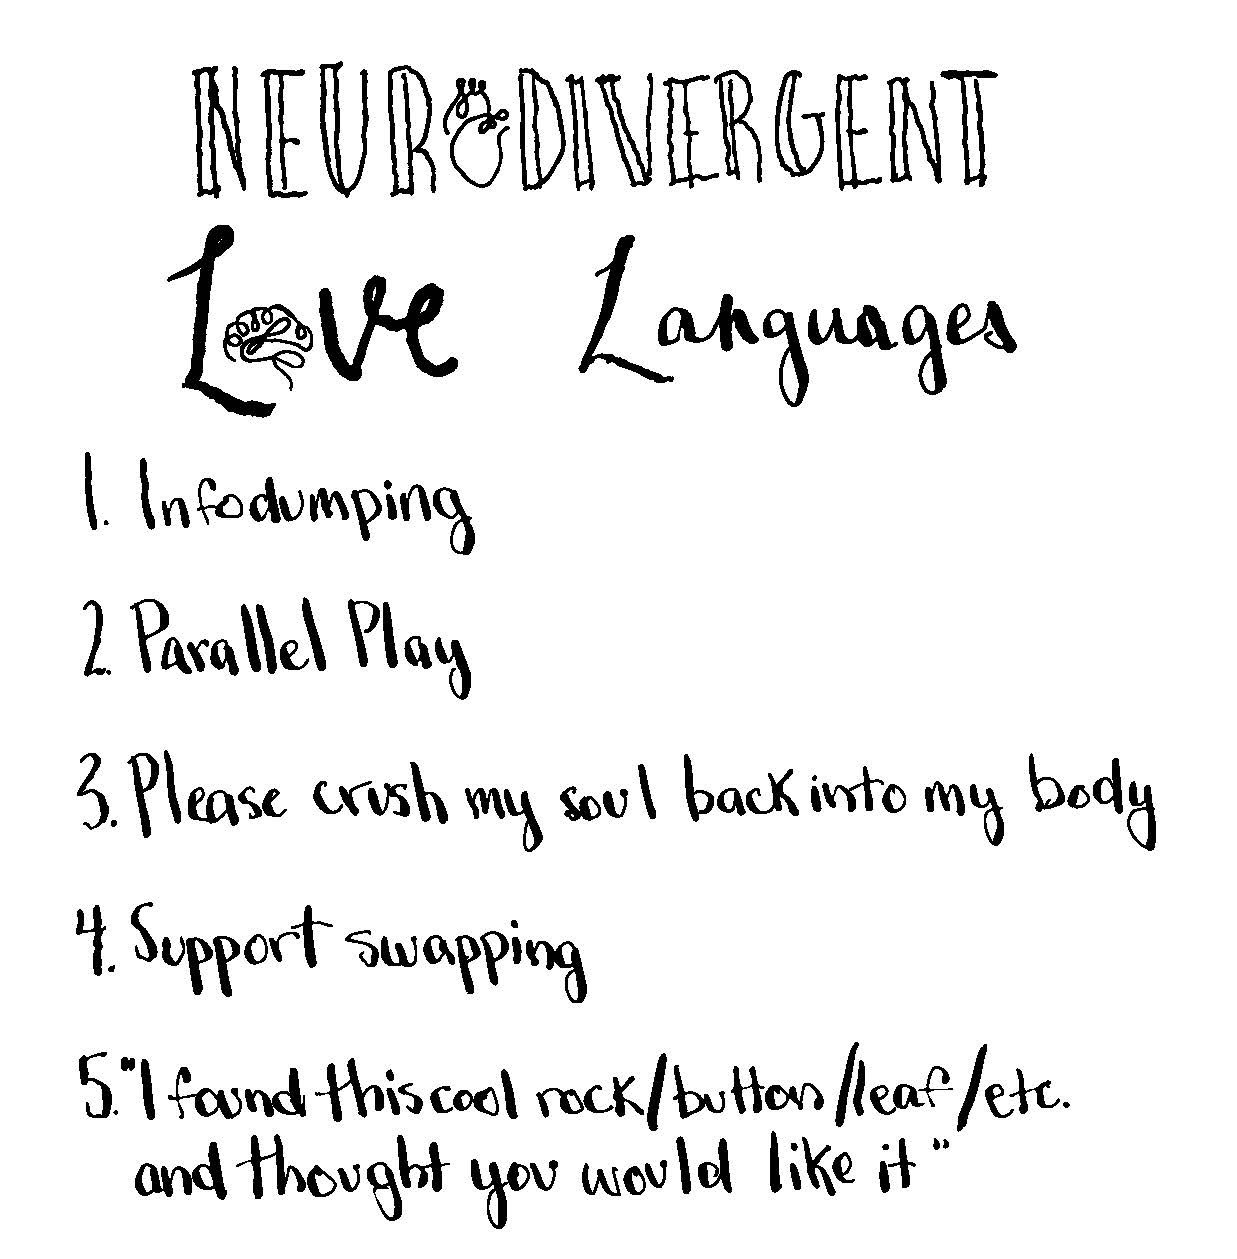 NEURODIVERGENT
Love Languages
1. Infodumping
2. Parallel Play
3. Please crush my soul back into my body
4. Support swapping
5. "I found this cool rock/button/leaf/etc.
and thought you would like it"